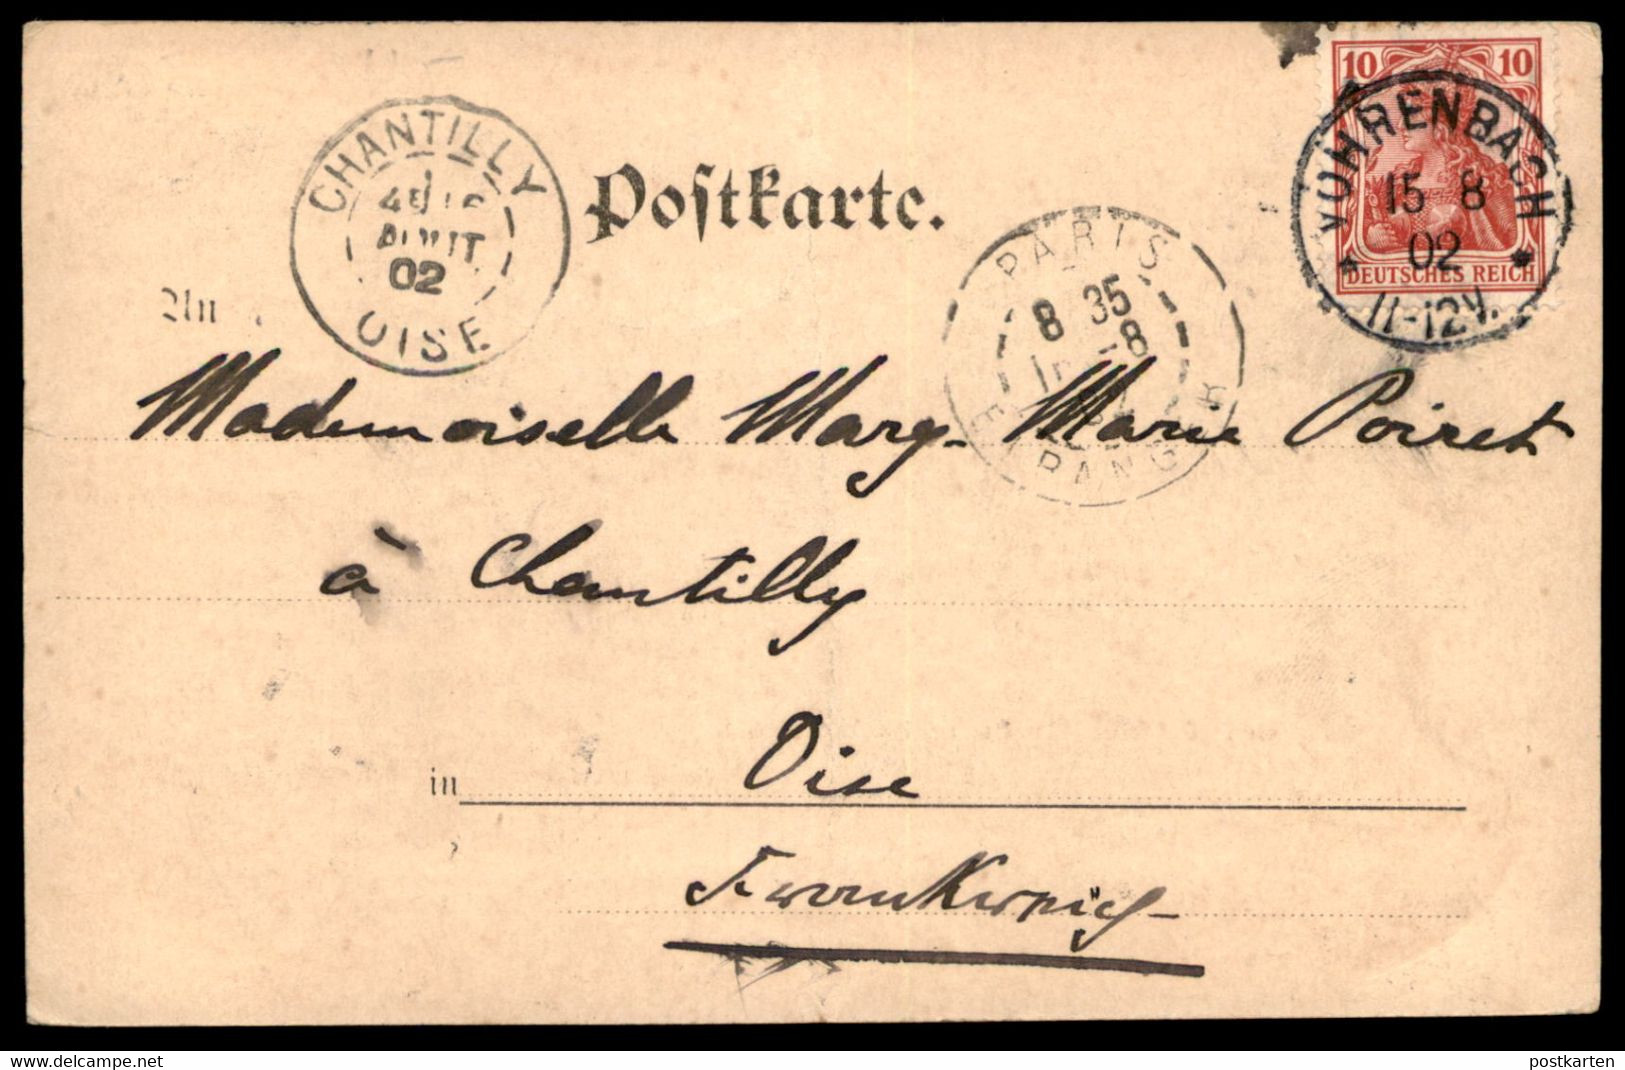 10 10
VÖHRENBACH
15 8
02
DEUTSCHES REICH
11-12V.
CHANTILLY
AOUT
02
OISE
Postkarte.
PARIS
8 35
ETRANGER
An
Mademoiselle Mary-Marie Poiret
à Chantilly
Oise
in
Frankreich
www.delcampe.net
postkarten